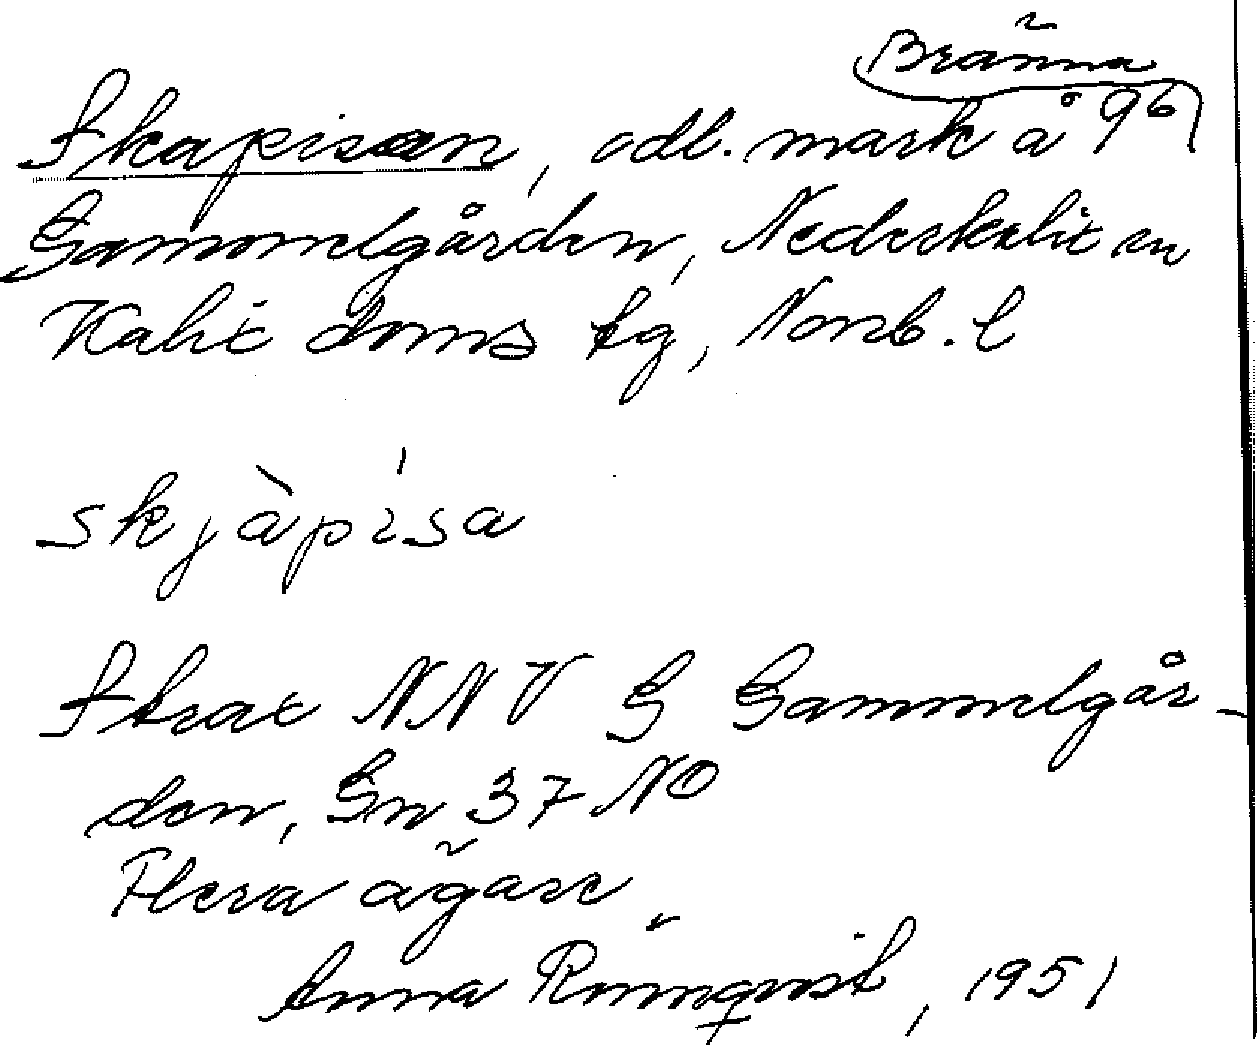 Bränna
Skapisan, odl. mark å 96
Gammelgården, Nederkalix sn
Kalix doms tg, Norrb. l
skjàpísa
Strax NNV G Gammelgår-
den, Gn 37 NO
Flera ägare
Anna Rönnqvist, 1951